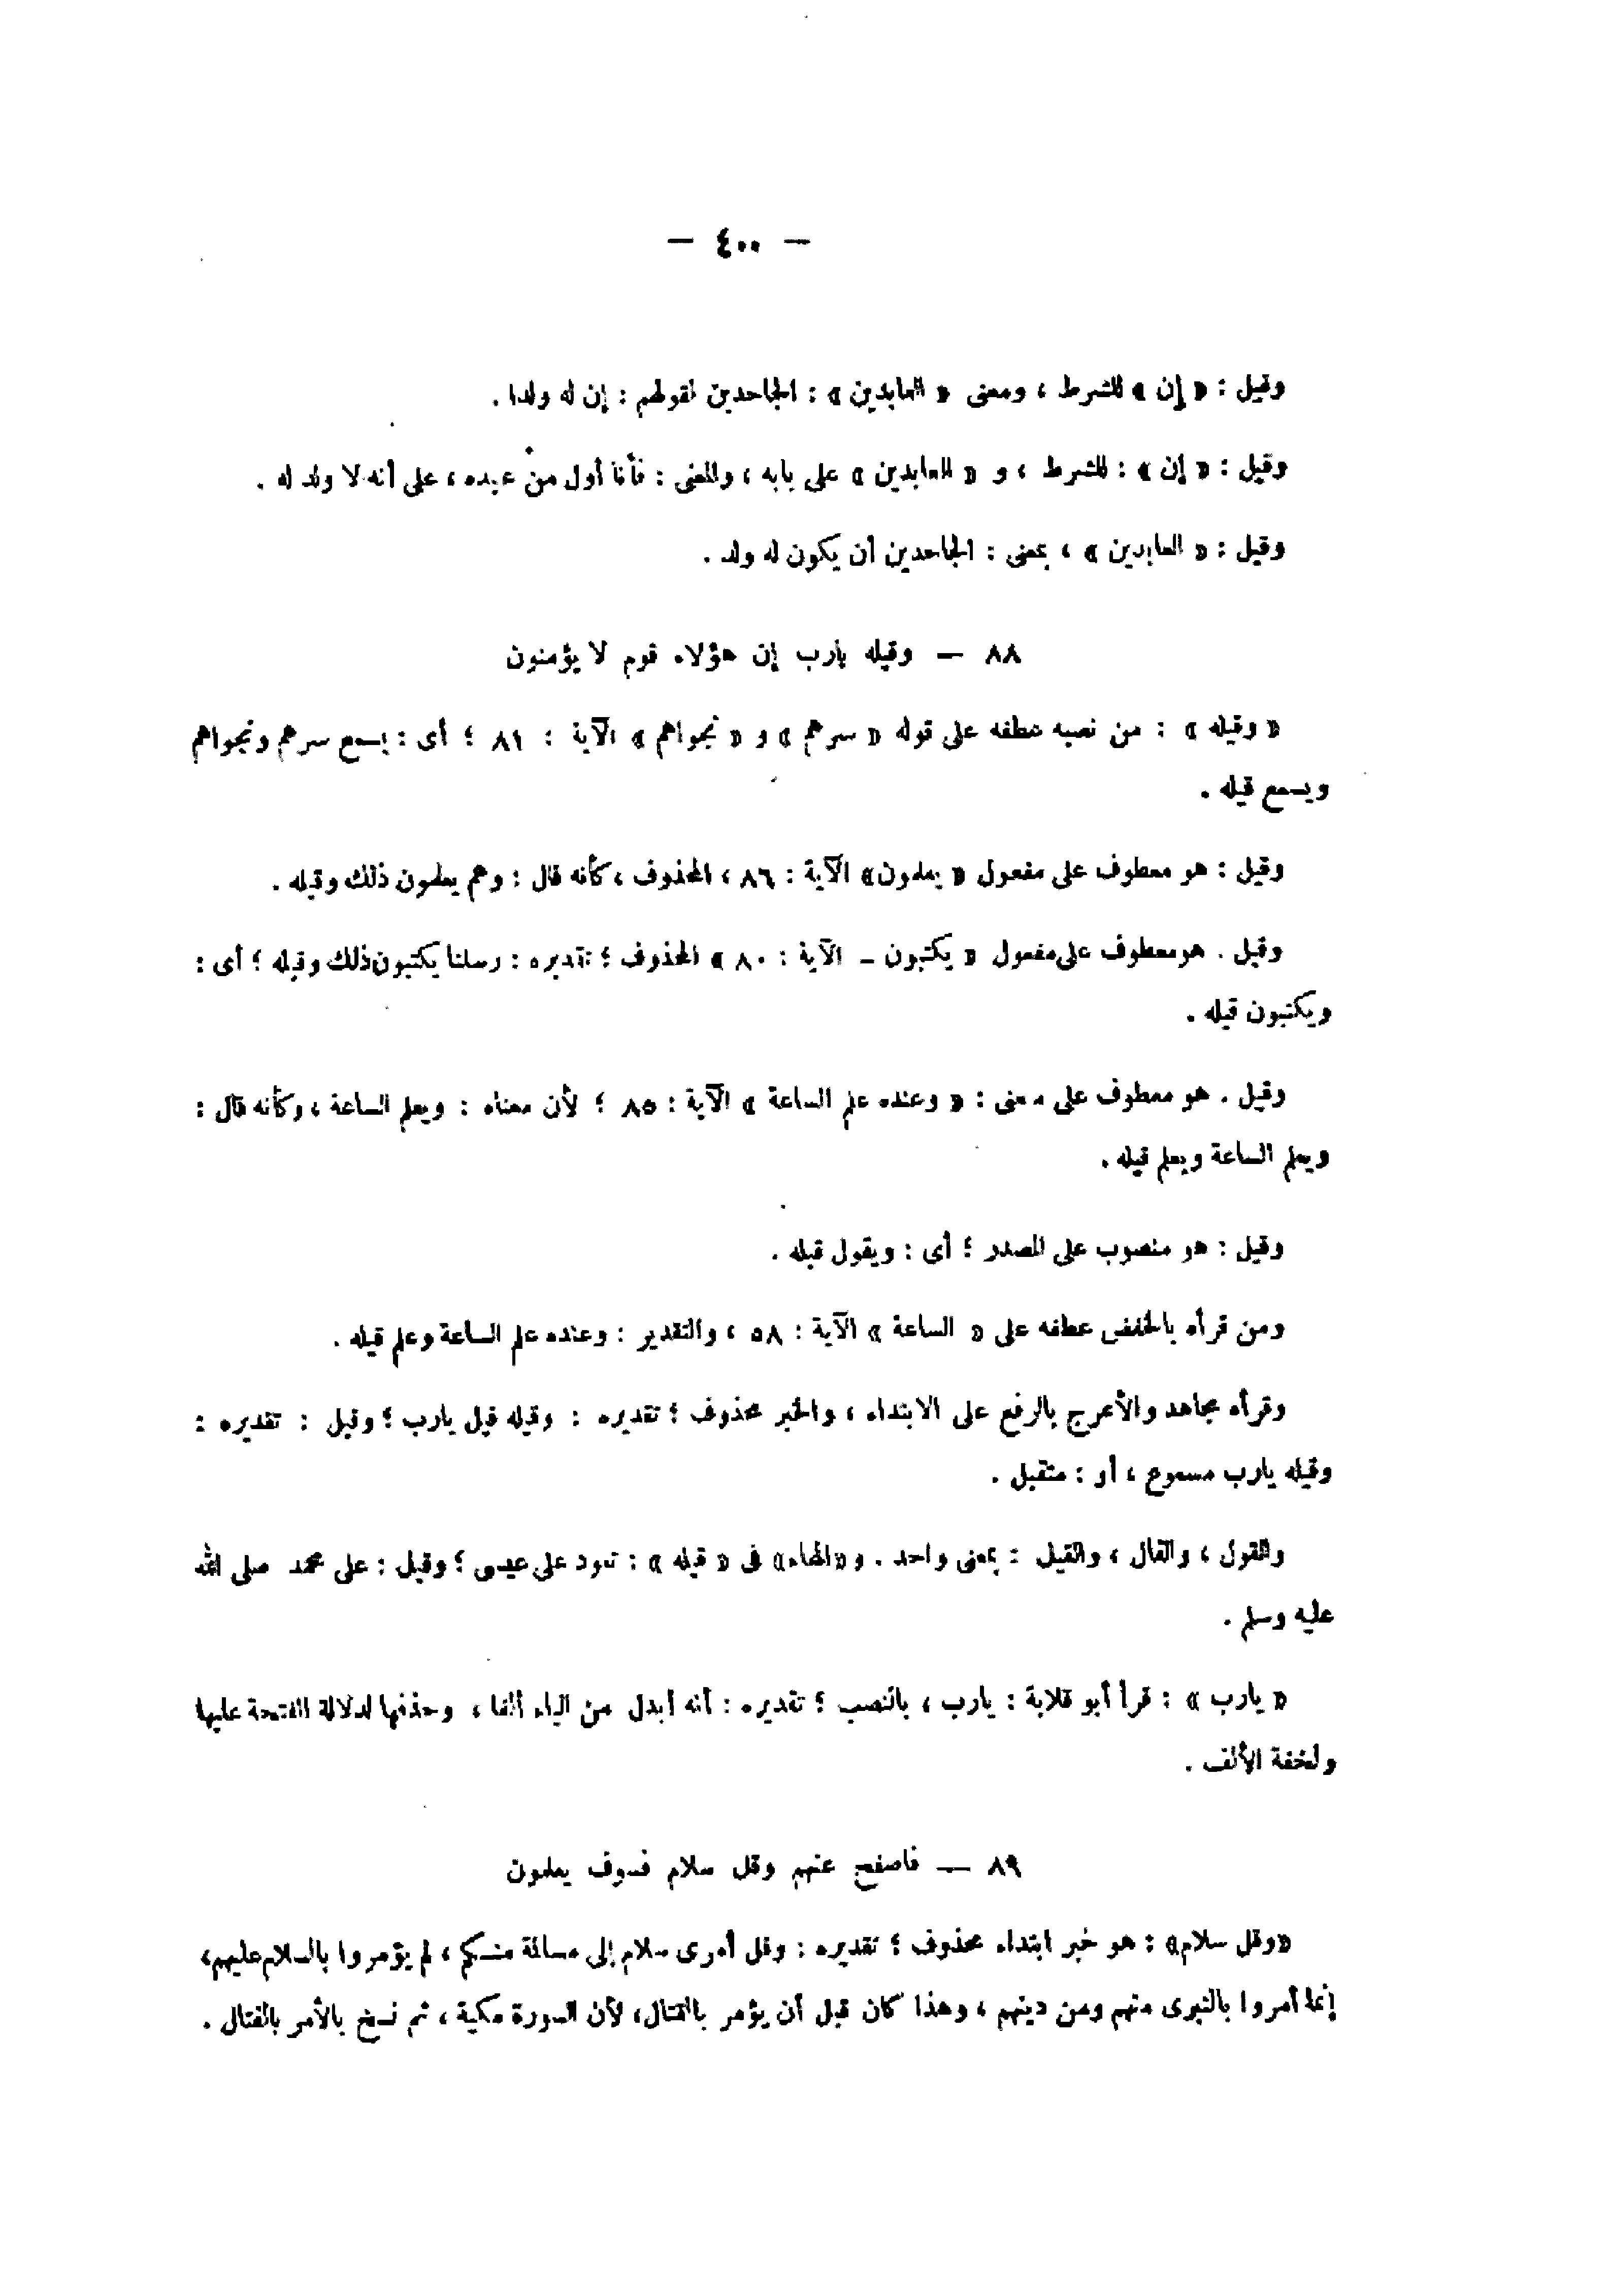 — ٤٠٠ —
وقيل : « إن » للشرط ، ومعنى « العابدين » : الجاحدين لقولهم : إن له ولدا .
وقيل : « إن » : للشرط ، و « العابدين » على بابه ، والمعنى : فأنا أول من عبده ، على أنه لا ولد له .
وقيل : « العابدين » ، بمعنى : الجاحدين أن يكون له ولد .
٨٨ — وقيله يارب إن هؤلاء قوم لا يؤمنون
« وقيله » : من نصبه عطفه على قوله « سرهم » و « نجواهم » الآية : ٨١ ؛ أى : يسمع سرهم ونجواهم
ويسمع قيله .
وقيل : هو معطوف على مفعول « يعلمون » الآية : ٨٦ ، المحذوف ، كأنه قال : وهم يعلمون ذلك وقيله .
وقيل . هو معطوف على مفعول « يكتبون – الآية : ٨٠ » المحذوف ؛ تقديره : رسلنا يكتبون ذلك وقيله ؛ أى :
ويكتبون قيله .
وقيل . هو معطوف على معنى : « وعنده علم الساعة » الآية : ٨٥ ؛ لأن معناه : ويعلم الساعة ، وكأنه قال :
ويعلم الساعة ويعلم قيله .
وقيل : هو منصوب على المصدر ؛ أى : ويقول قيله .
ومن قرأه بالخفض عطفه على « الساعة » الآية : ٥٨ ، والتقدير : وعنده علم الساعة وعلم قيله .
وقرأه مجاهد والأعرج بالرفع على الابتداء ، والخبر محذوف ؛ تقديره : وقيله قيل يارب ؛ وقيل : تقديره :
وقيله يارب مسموع ، أو : متقبل .
والقول ، والقال ، والقيل : بمعنى واحد . و «الهاء» فى « قيله » : تعود على عيسى ؛ وقيل : على محمد صلى الله
عليه وسلم .
« يارب » : قرأ أبو قلابة : يارب ، بالنصب ؛ تقديره : أنه أبدل من الياء ألفا ، وحذفها لدلالة الفتحة عليها
ولخفة الألف .
٨٩ — فاصفح عنهم وقل سلام فسوف يعلمون
«وقل سلام» : هو خبر ابتداء محذوف ؛ تقديره : وقل أمرى سلام إلى مسالمة منسكم ، لم يؤمروا بالسلام عليهم،
إنما أمروا بالتبرى منهم ومن دينهم ، وهذا كان قبل أن يؤمر بالقتال، لأن السورة مكية ، ثم نسخ بالأمر بالقتال .